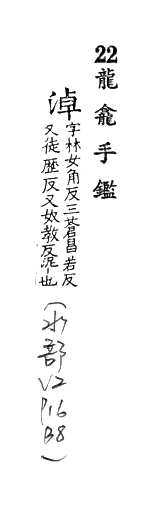 22龍龕手鑑
淖字林女角反三蒼昌若反
又徒歷反又奴教反泥也
(水部
V2
P16
B8)